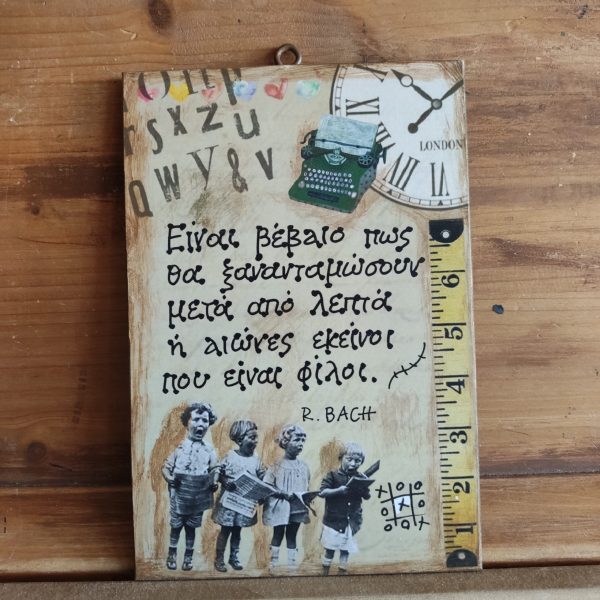 rsxzu
QWY&V
LONDON
Είναι βέβαιο πως
θα ξανανταμώσουν
μετά από λεπτά
ή αιώνες εκείνοι
που είναι φίλοι.
R. BACH
6
5
4
3
2
1